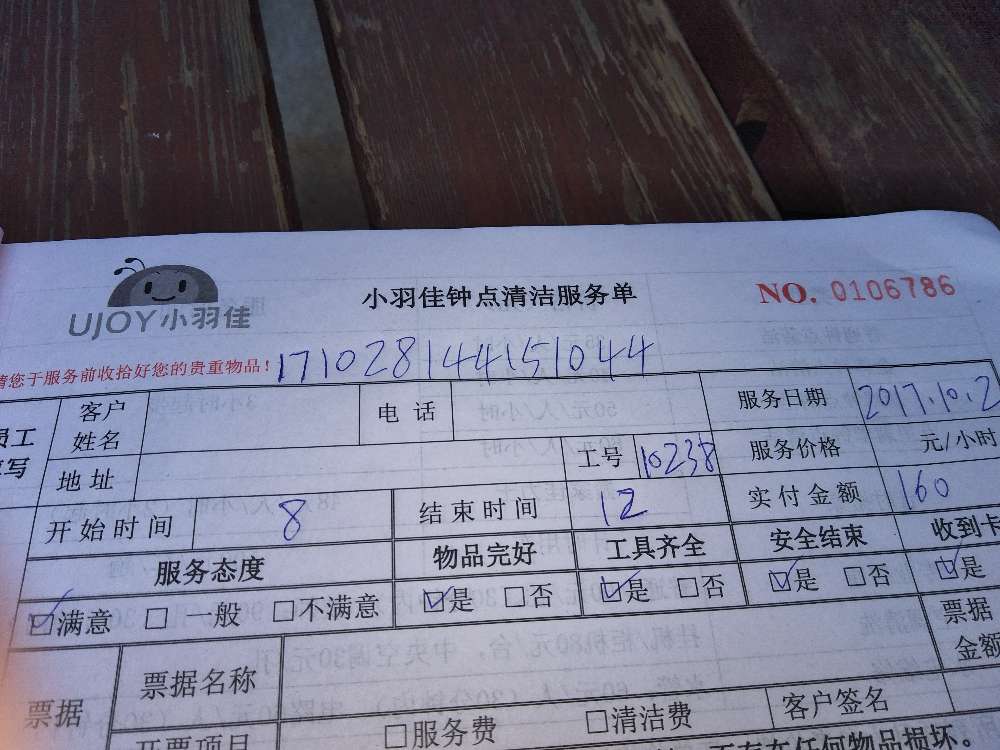 UJOY小羽佳
小羽佳钟点清洁服务单
NO. 0106786
请您于服务前收拾好您的贵重物品！
171028144151044
客户姓名 电话 服务日期 2017.10.2
地址 工号 10238 服务价格 元/小时
开始时间 8 结束时间 12 实付金额 160
服务态度 物品完好 工具齐全 安全结束 收到卡
☑满意 □一般 □不满意 ☑是 □否 ☑是 □否 ☑是 □否 ☑是
票据 票据名称 票据金额
开票项目 □服务费 □清洁费 客户签名
任何物品损坏。